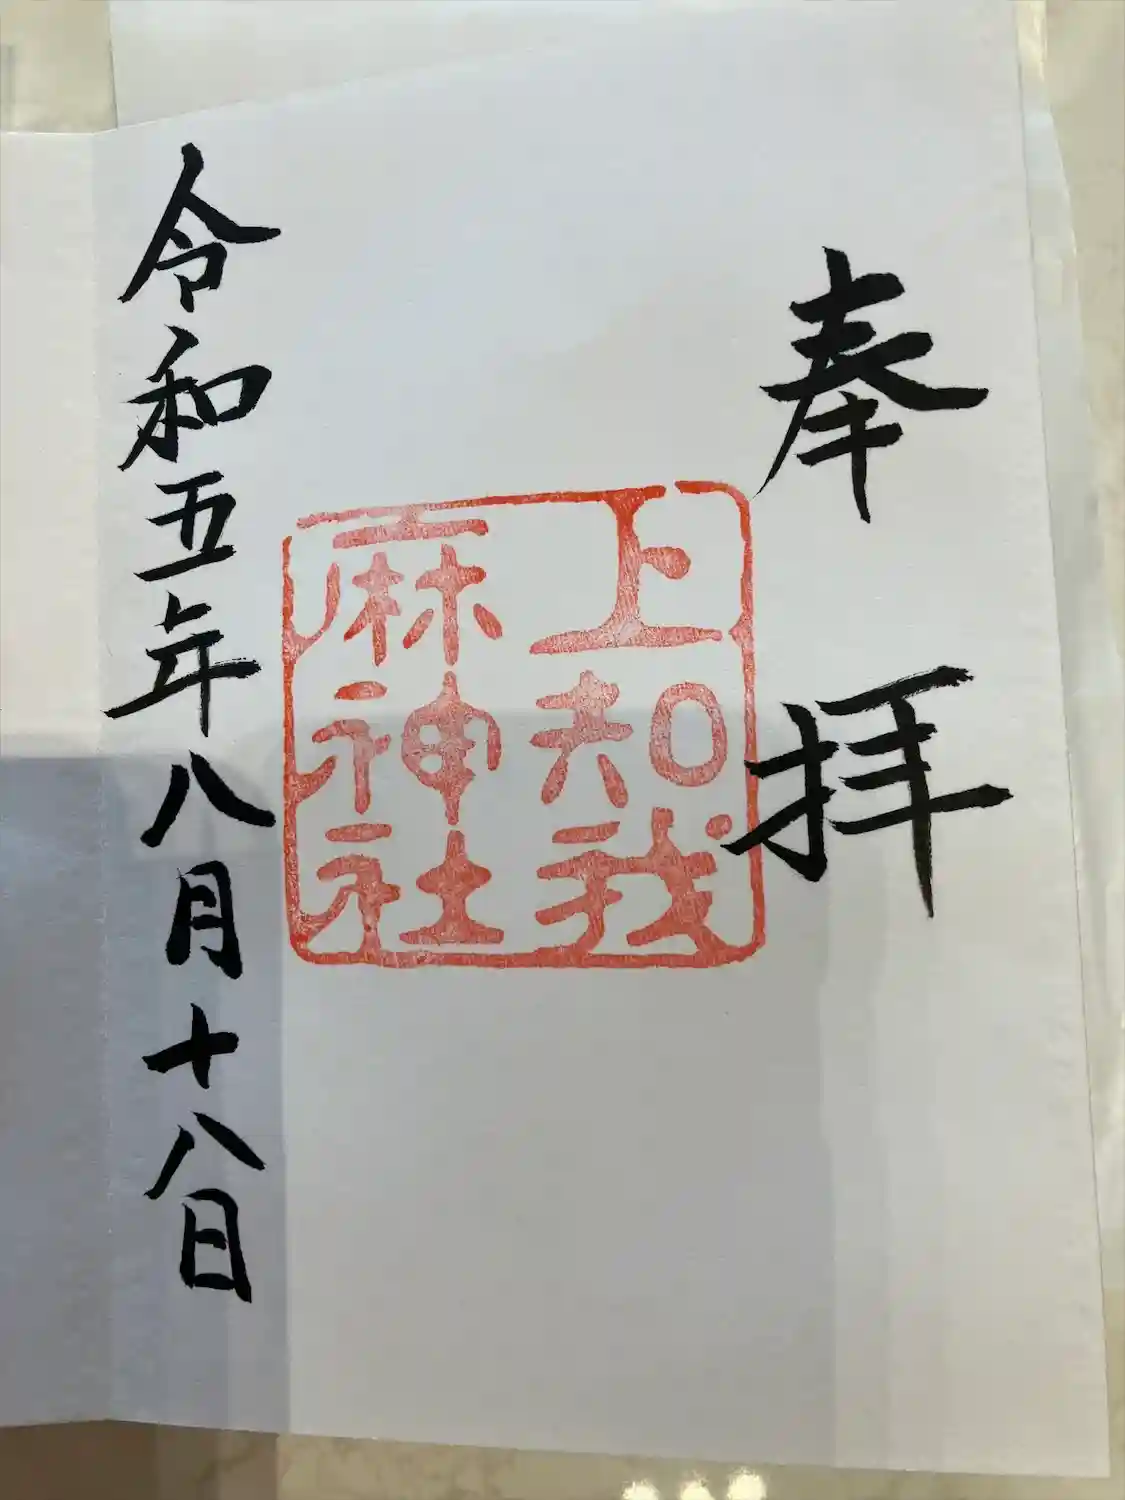 奉拝
上知我
麻神社
令和五年八月十八日